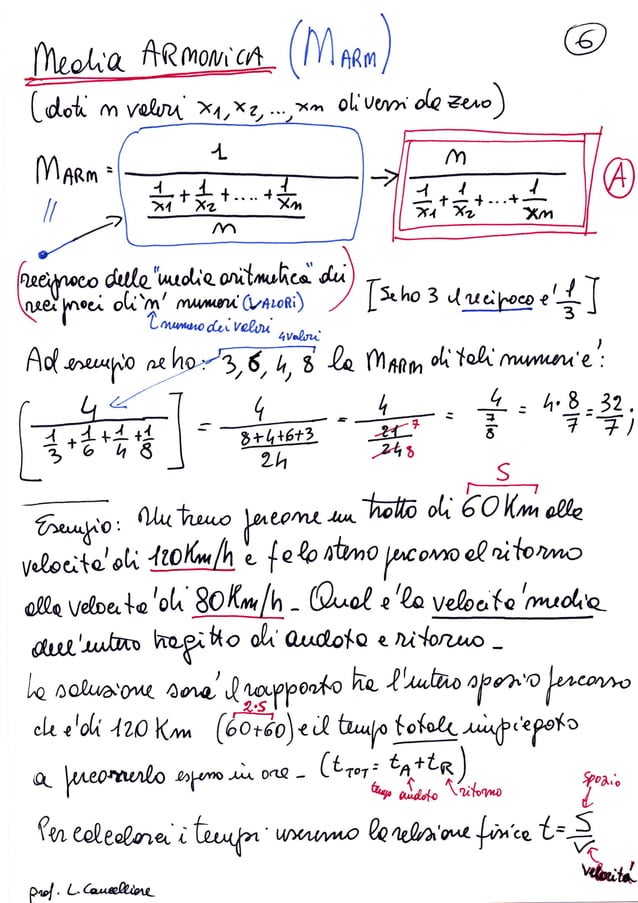 Media ARMONICA (MARM) 6
(dati n valori x1, x2, ..., xn diversi da zero)
MARM = 1 / ((1/x1 + 1/x2 + .... + 1/xn) / n) → n / (1/x1 + 1/x2 + ... + 1/xn) A
(reciproco della "media aritmetica" dei
reciproci di 'n' numeri (VALORI)) [Se ho 3 il reciproco e' 1/3]
numero dei valori 4 valori
Ad esempio se ho: 3, 6, 4, 8 la MARM di tali numeri e':
[4 / (1/3 + 1/6 + 1/4 + 1/8)] = 4 / ((8+4+6+3)/24) = 4 / (21/24) 7 8 = 4 / (7/8) = 4 · 8/7 = 32/7;
S
Esempio: Un treno percorre un tratto di 60 Km alla
velocita' di 120 Km/h e fa lo stesso percorso al ritorno
alla velocita' di 80 Km/h - Qual e' la velocita' media
dell'intero tragitto di andata e ritorno -
La soluzione sara' il rapporto tra l'intero spazio percorso
2·S
che e' di 120 Km (60+60) e il tempo totale impiegato
a percorrerlo espresso in ore - (tTOT = tA + tR)
tempo andata ritorno
spazio
Per calcolarci i tempi useremo la relazione fisica t = S/v
velocità
prof. L. Cancelliere